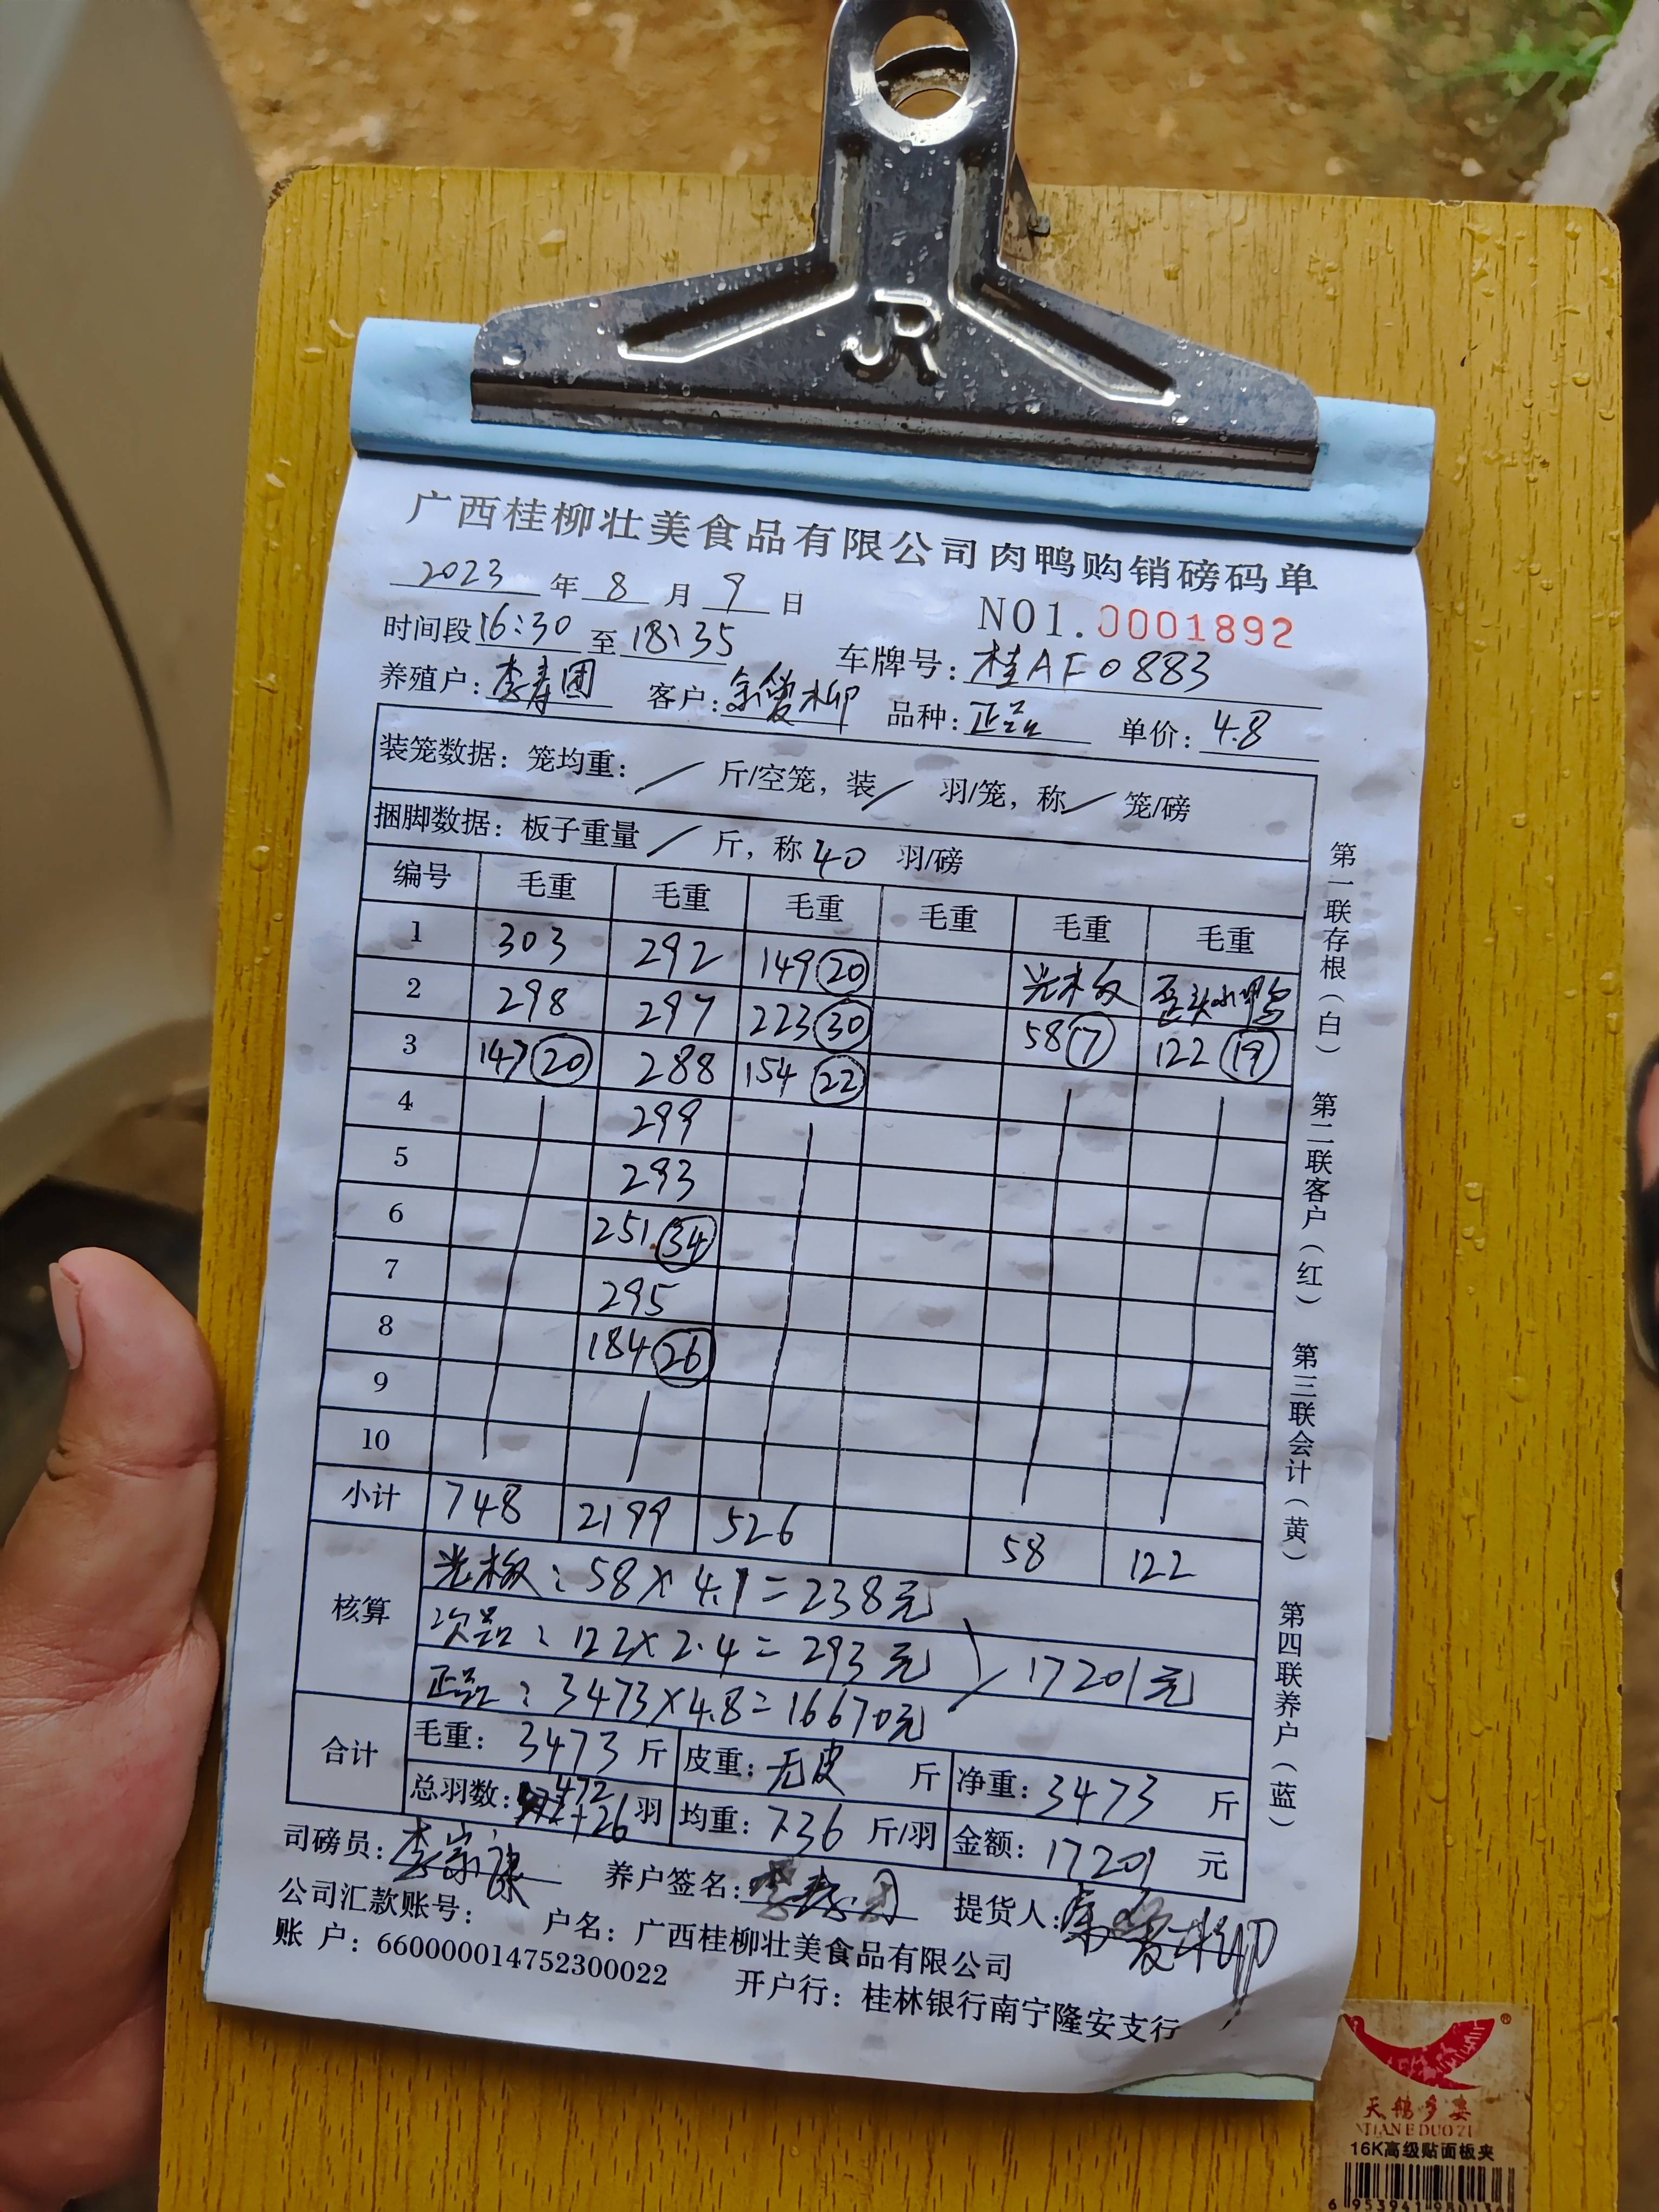 JR
广西桂柳壮美食品有限公司肉鸭购销磅码单
2023 年 8 月 9 日
NO1.0001892
时间段 16:30 至 18:35 车牌号: 桂AF0883
养殖户: 李寿团 客户: 余爱柳 品种: 正品 单价: 4.8
装笼数据: 笼均重: / 斤/空笼, 装 / 羽/笼, 称 / 笼/磅
捆脚数据: 板子重量 / 斤, 称 40 羽/磅
编号 毛重 毛重 毛重 毛重 毛重 毛重
1 303 292 149 20 光木板 歪头小鸭
2 298 297 223 30 58 7 122 19
3 147 20 288 154 22
4 299
5 293
6 251 34
7 295
8 184 26
9
10
小计 748 2199 526 58 122
核算
光木板: 58×4.1=238元
次品: 122×2.4=293元
正品: 3473×4.8=16670元
17201元
合计
毛重: 3473 斤 皮重: 无皮 斤 净重: 3473 斤
总羽数: 472+26 羽 均重: 7.36 斤/羽 金额: 17201 元
司磅员: 李 养户签名: 李寿团 提货人: 余爱柳
公司汇款账号: 户名: 广西桂柳壮美食品有限公司
账 户: 660000014752300022 开户行: 桂林银行南宁隆安支行
第一联存根(白) 第二联客户(红) 第三联会计(黄) 第四联养户(蓝)
天鹅多姿
TIAN E DUO ZI
16K高级贴面板夹